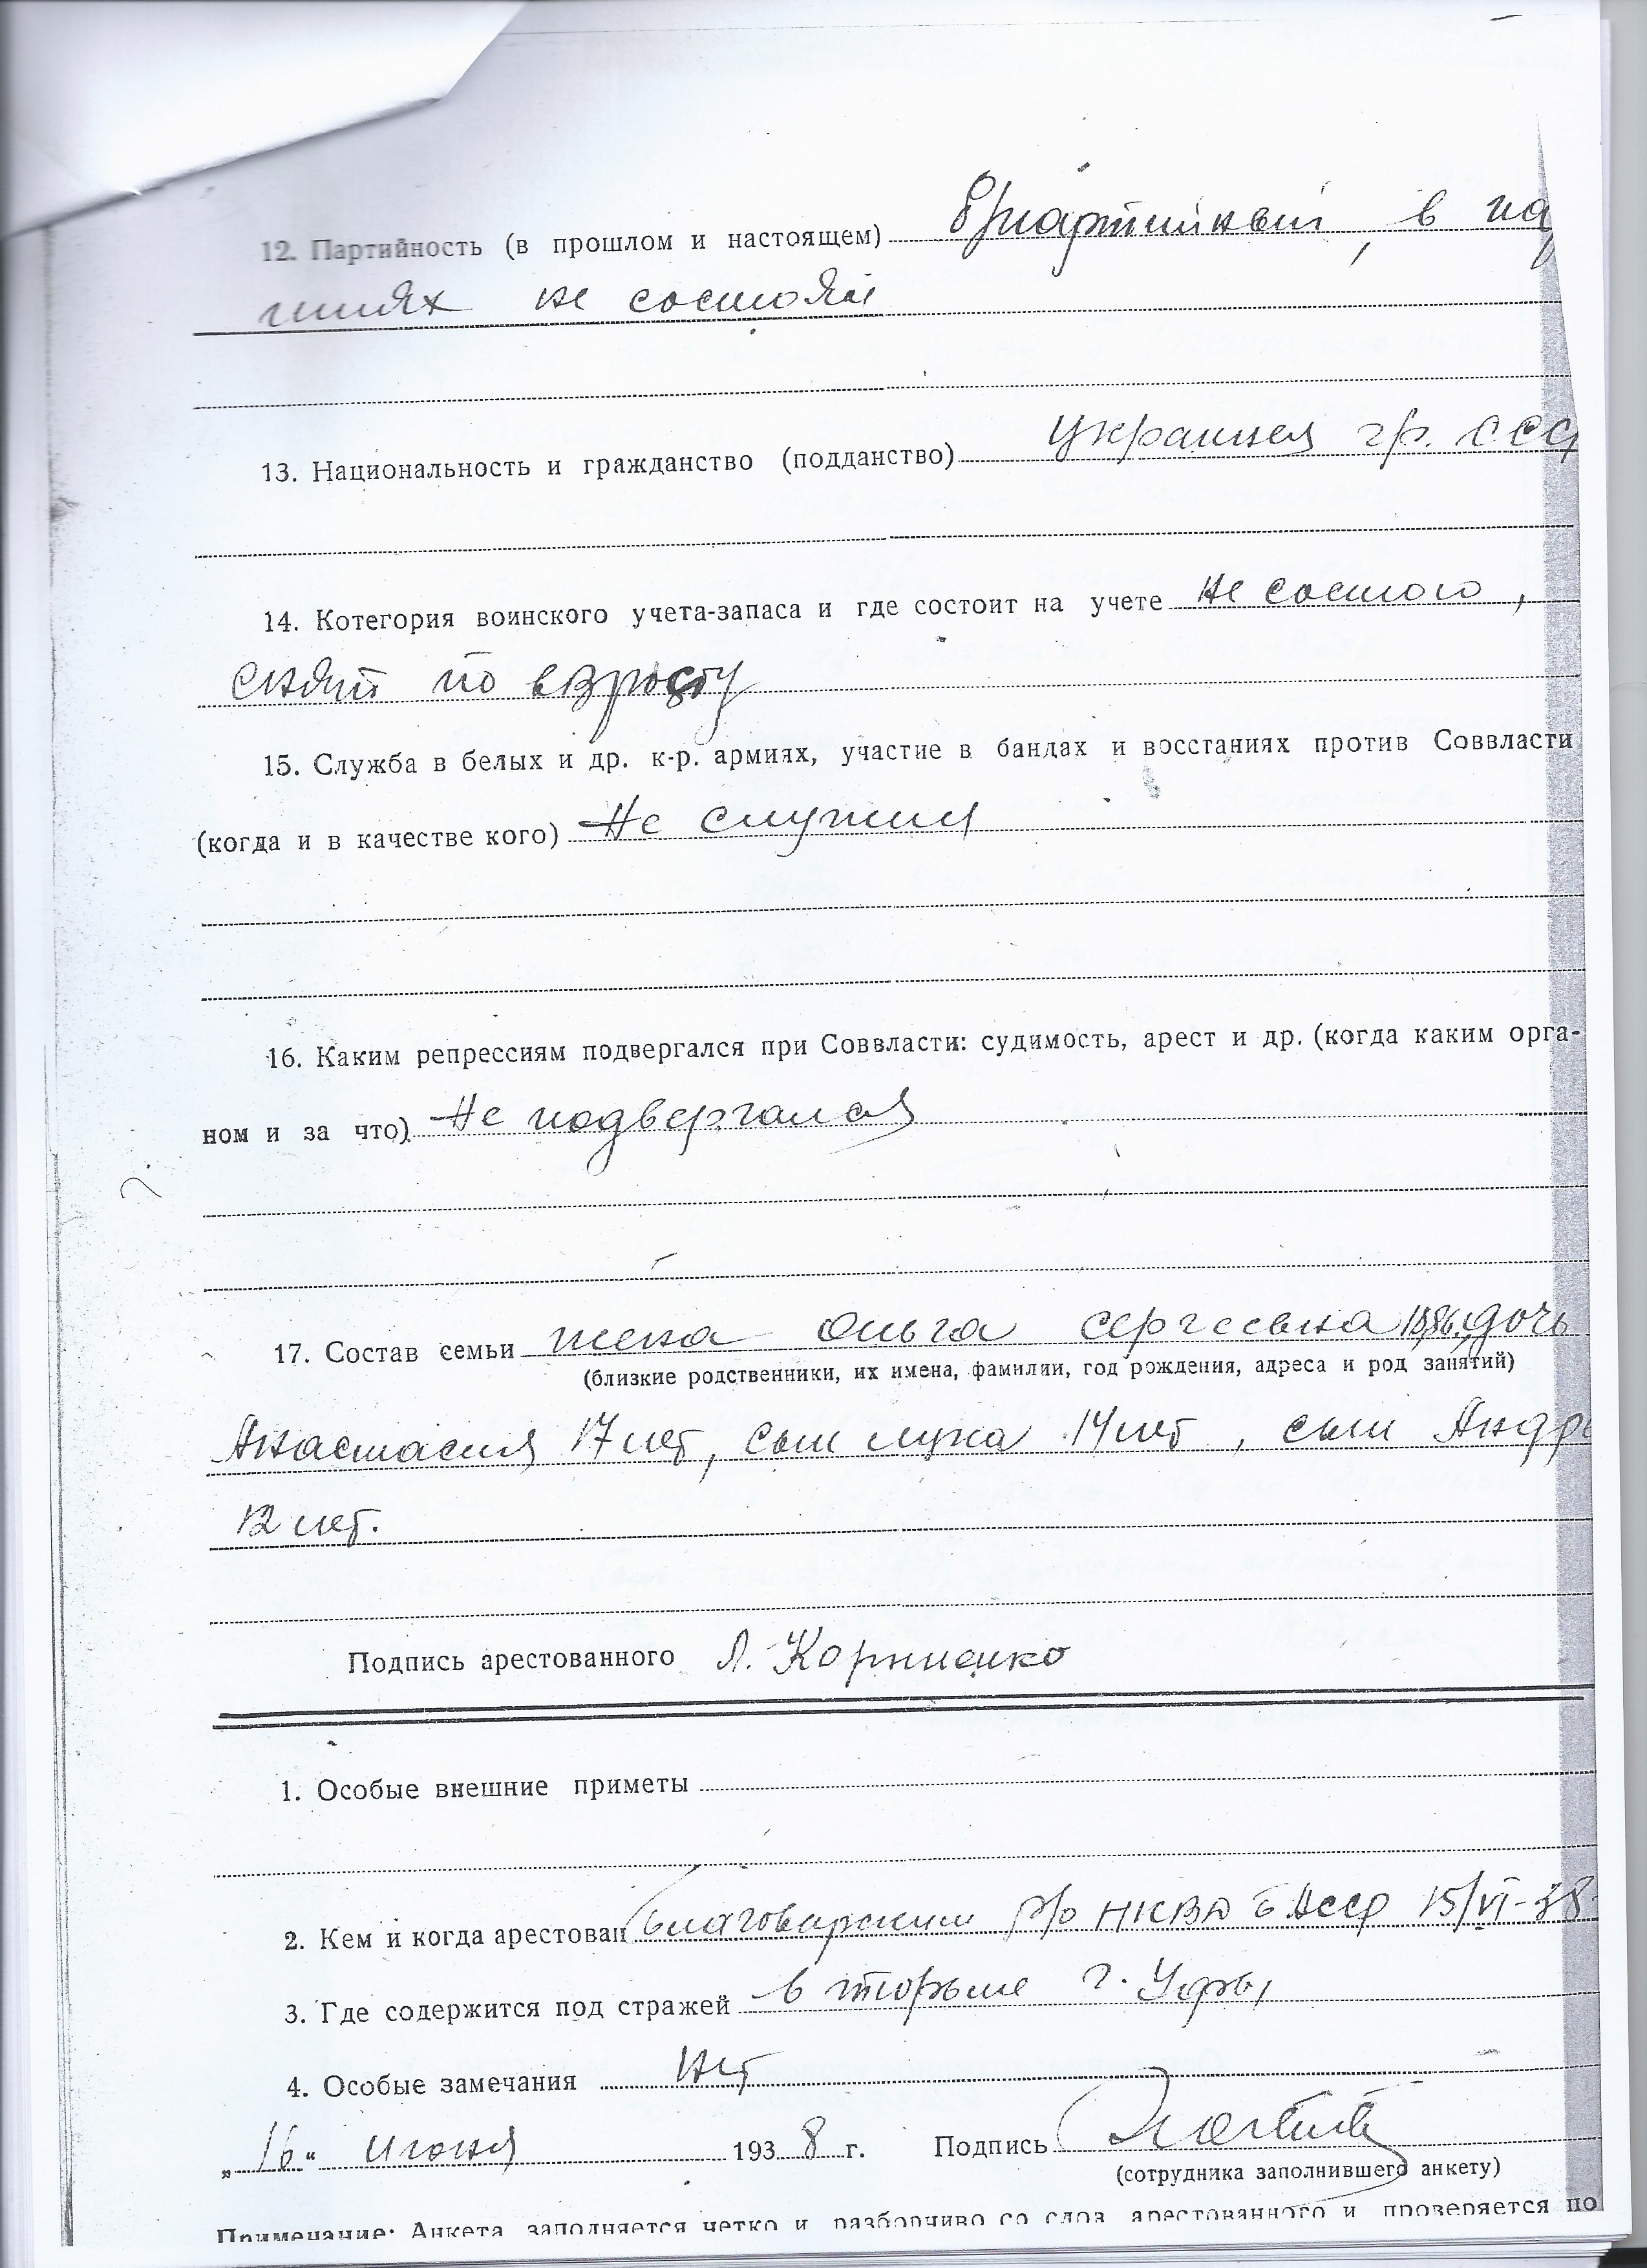 12. Партийность (в прошлом и настоящем) б/партийный, в па
тиях не состоял
13. Национальность и гражданство (подданство) украинец гр. ССС
14. Котегория воинского учета-запаса и где состоит на учете не состою,
снят по возросту
15. Служба в белых и др. к-р. армиях, участие в бандах и восстаниях против Соввласти
(когда и в качестве кого) Не служил
16. Каким репрессиям подвергался при Соввласти: судимость, арест и др. (когда каким орга-
ном и за что) Не подвергался
17. Состав семьи жена Ольга Сергеевна дочь
(близкие родственники, их имена, фамилии, год рождения, адреса и род занятий)
Анастасия 17 лет, сын Лука 14 лет, сын Андр
12 лет.
Подпись арестованного Л. Корниенко
1. Особые внешние приметы
2. Кем и когда арестован Благоварским р/о НКВД БАССР 15/VI-38
3. Где содержится под стражей в тюрьме г. Уфы
4. Особые замечания нет
„16“ июня 1938 г. Подпись
(сотрудника заполнившего анкету)
Примечание: Анкета заполняется четко и разборчиво со слов арестованного и проверяется по